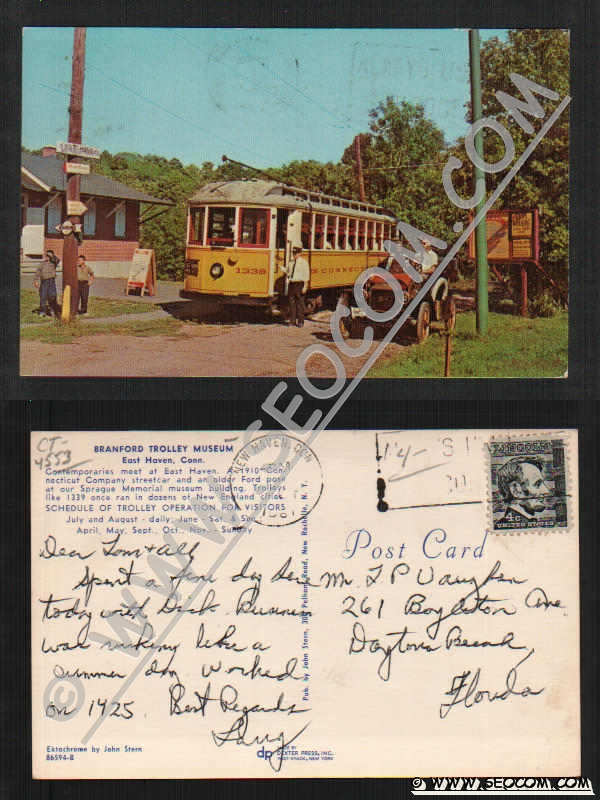 1339
CONNECTICUT
WWW.SEOCOM.COM
CT-
4553
BRANFORD TROLLEY MUSEUM
East Haven, Conn.
Contemporaries meet at East Haven. A 1910 Con-
necticut Company streetcar and an older Ford pose
at our Sprague Memorial museum building. Trolleys
like 1339 once ran in dozens of New England cities.
SCHEDULE OF TROLLEY OPERATION FOR VISITORS
July and August - daily; June - Sat. & Sun.
April, May, Sept., Oct., Nov. - Sunday
NEW HAVEN, CONN
Dear Tom & All
Spent a fine day here
today with Dick. Business
was running like a
summer day. Worked
on 1425. Best Regards
Ektachrome by John Stern
86594-B
Pub. by John Stern, 300 Pelham Road, New Rochelle, N. Y.
dp
DEXTER PRESS, INC.
WEST NYACK, NEW YORK
1/4-
4c
UNITED STATES
Post Card
Mr. L P Vaughn
261 Boylston Ave.
Daytona Beach,
Florida
© WWW.SEOCOM.COM
© WWW.SEOCOM.COM